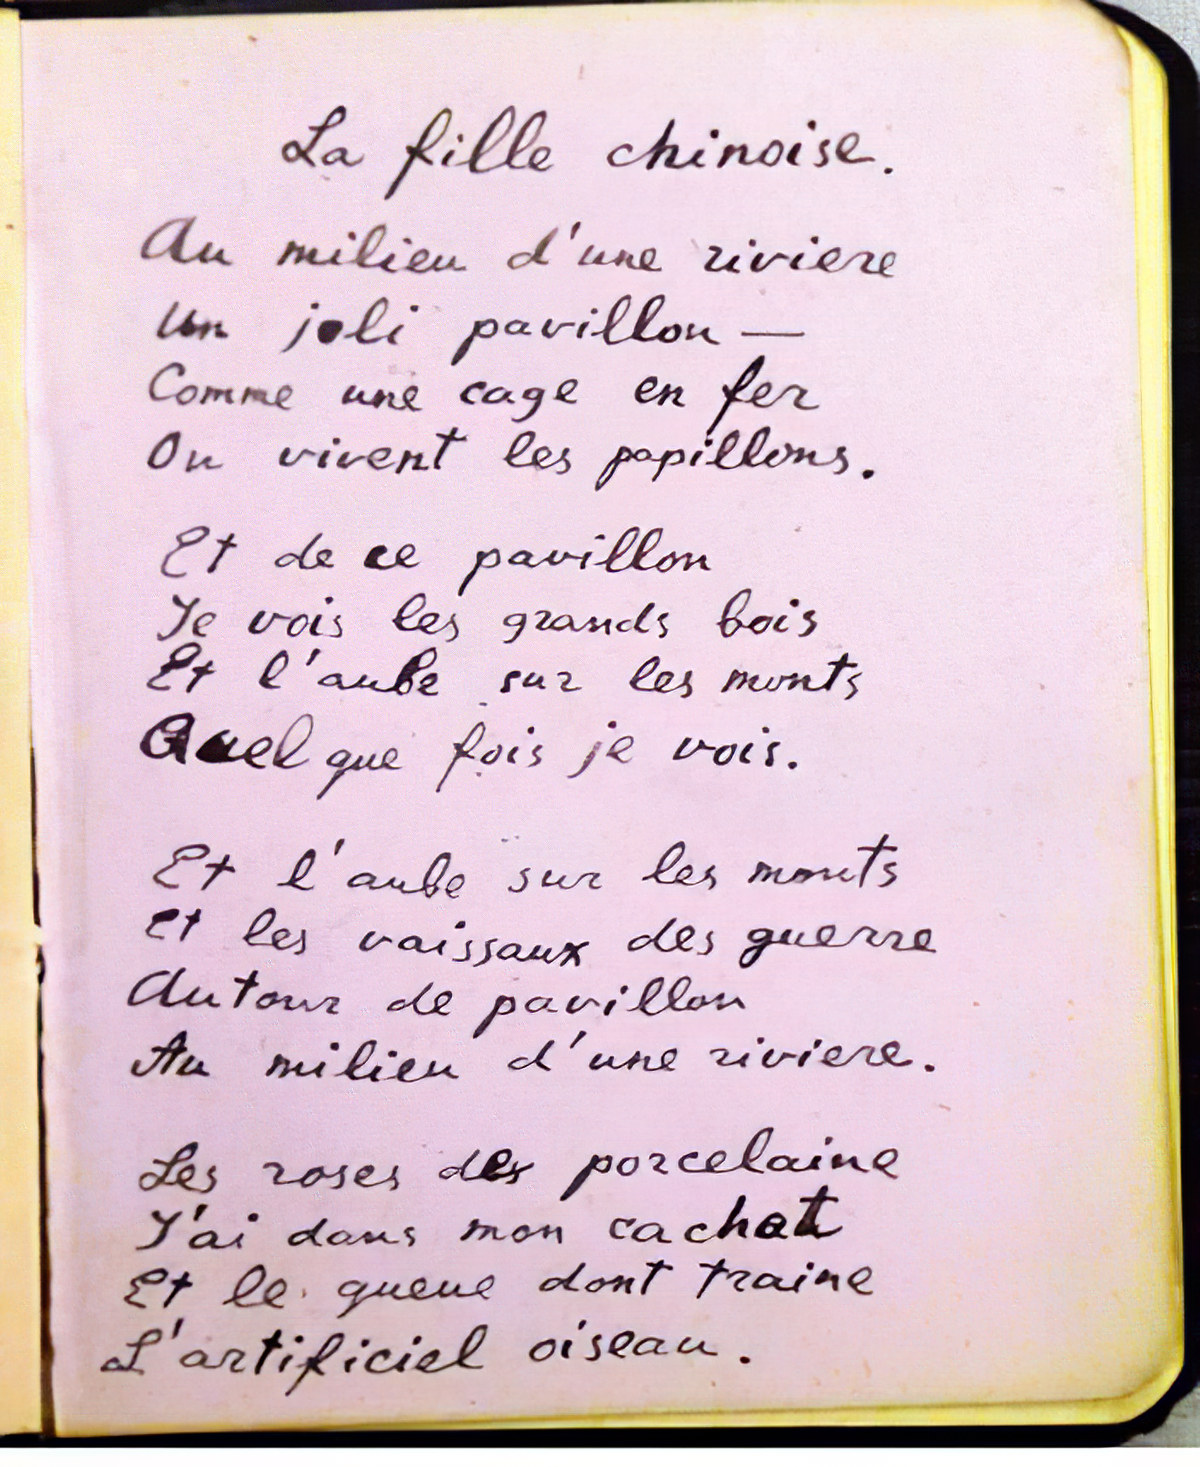 La fille chinoise.
Au milieu d'une riviere
Un joli pavillon —
Comme une cage en fer
Ou vivent les papillons.
Et de ce pavillon
Je vois les grands bois
Et l'aube sur les monts
Quelque fois je vois.
Et l'aube sur les monts
et les vaissaux des guerre
Autour de pavillon
Au milieu d'une riviere.
Les roses des porcelaine
J'ai dans mon cachot
Et le queue dont traine
L'artificiel oiseau.